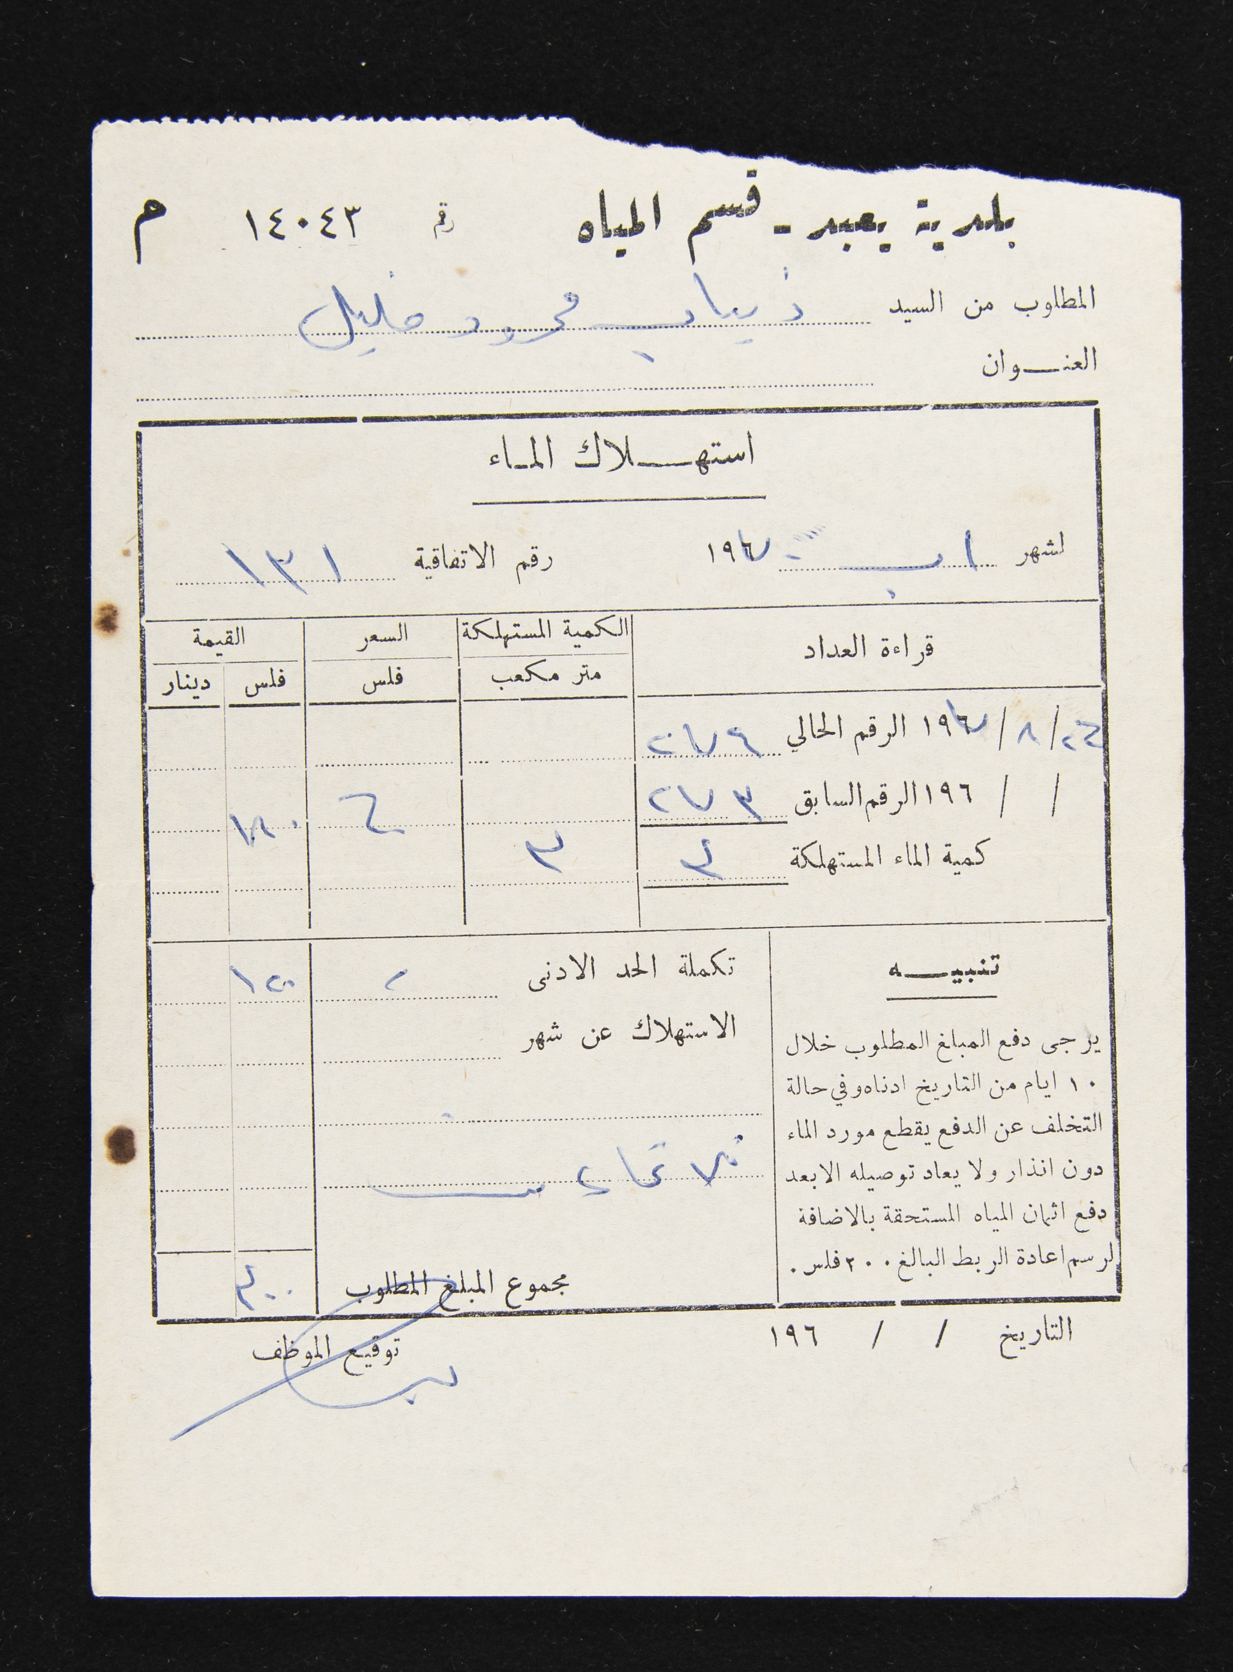 بلدية يعبد - قسم المياه رقم ١٤٠٤٣ م
المطلوب من السيد ذياب محمود خليل
العنوان
استهلاك الماء
لشهر اب ١٩٦٧ رقم الاتفاقية ١٣١
قراءة العداد الكمية المستهلكة السعر القيمة
متر مكعب فلس فلس دينار
٢٦/٨/١٩٦٧ الرقم الحالي ٢٧٦
/ / ١٩٦ الرقم السابق ٢٧٣
٦٠ ١٨٠
كمية الماء المستهلكة ٣ ٣
تنبيه
يرجى دفع المبلغ المطلوب خلال
١٠ ايام من التاريخ ادناه وفي حالة
التخلف عن الدفع يقطع مورد الماء
دون انذار ولا يعاد توصيله الا بعد
دفع اثمان المياه المستحقة بالاضافة
لرسم اعادة الربط البالغ ٢٠٠ فلس.
تكملة الحد الادنى ١٢٠
الاستهلاك عن شهر
مجموع المبلغ المطلوب ٣٠٠
التاريخ / / ١٩٦
توقيع الموظف